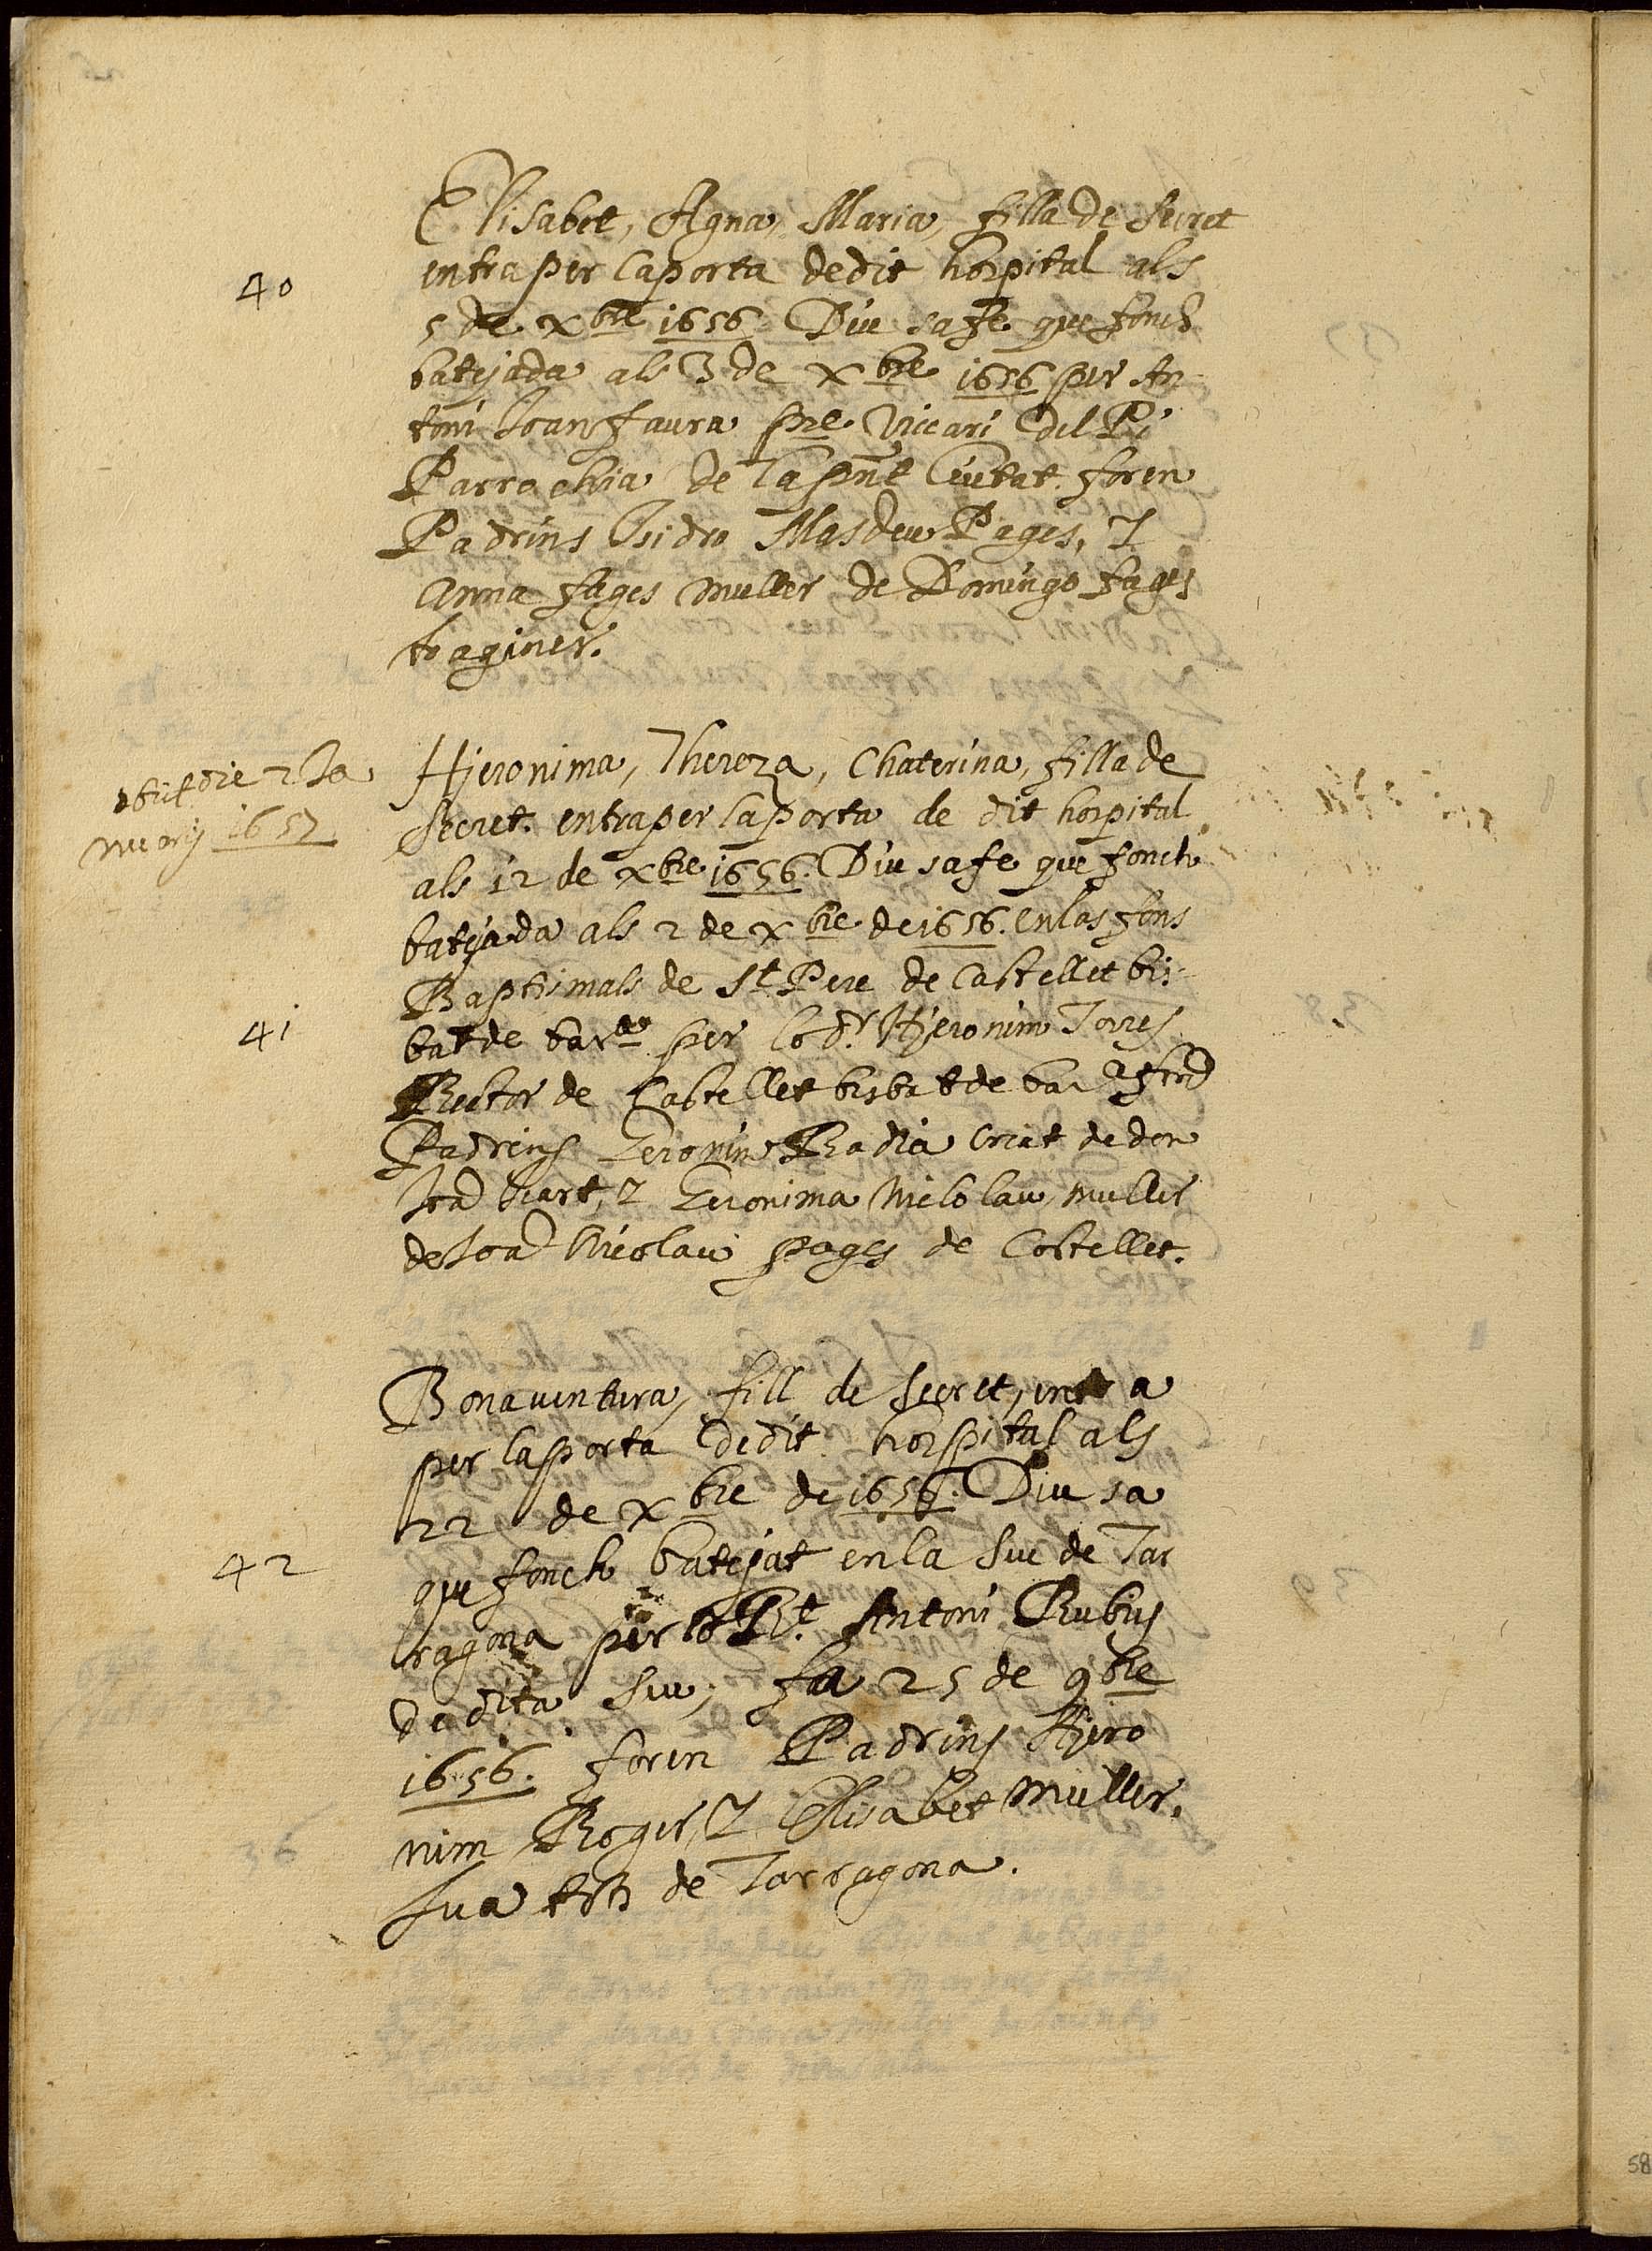 Elisabet, Agna, Maria, filla de secret
40
entra per la porta de dit hospital als
5 de xbre 1656. Diu sa fe que fonch
batejada als 3 de xbre 1656 per An
toni Joan faura pre. Viccari del Pi
Parrochia de la pnt Ciutat. foren
Padrins Isidro Masdeu Pages, Y
Anna fages muller de Domingo fages
traginer.
obiit die 2 Ja
nuarij 1657
Hjeronima, Thereza, Chaterina, filla de
secret. entra per la porta de dit hospital
als 12 de xbre 1656. Diu sa fe que fonch
batejada als 2 de xbre de 1656. en las fons
Baptismals de St Pere de Castellet bis
41
bat de barna per lo dr Hjeronim Torres
Rector de Castellet bisbat de bar
Padrins Geronim Badia criat de don
Y Geronima Nicolau, muller
de Joan Nicolau pages de Castellet.
Bonaventura, fill de secret, entra
per la porta de dit hospital als
22 de xbre de 1656. Diu sa
42
que fonch batejat en la Seu de Tar
ragona per lo Rt. Antoni Rubies
de dita Seu, fa 25 de 9bre
1656. foren Padrins Hjero
nim Roger, Y Elisabet muller
sua tots de Tarragona.
58